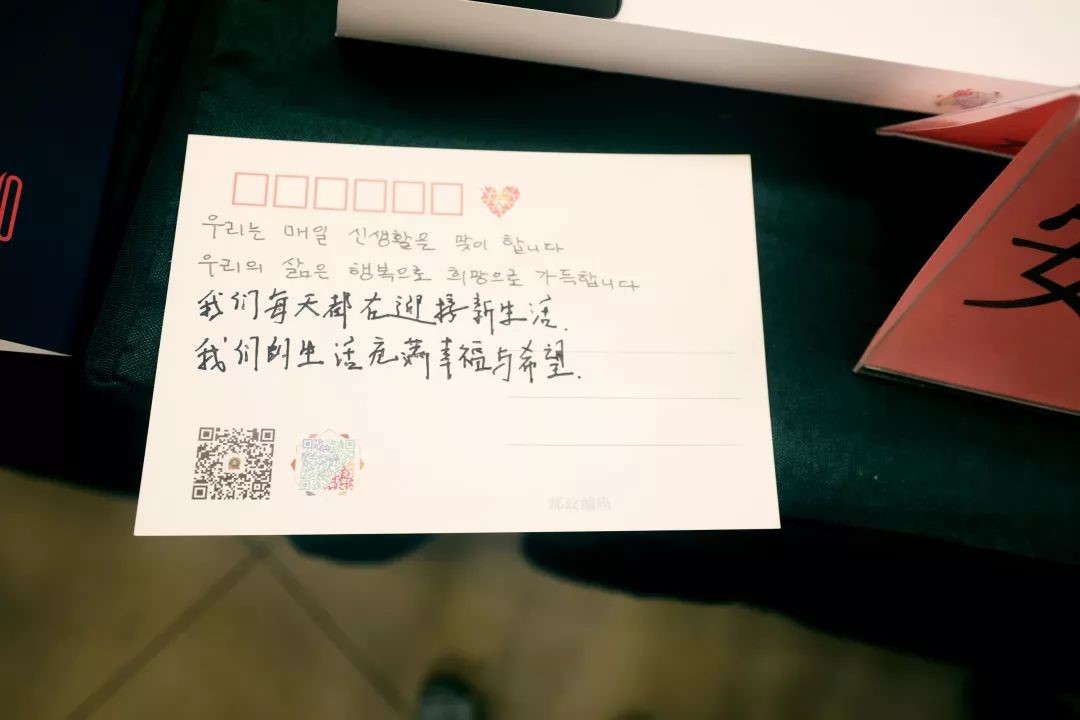 우리는 매일 신생활은 맞이 합니다
우리의 삶은 행복으로 희망으로 가득합니다
我们每天都在迎接新生活.
我们的生活充满幸福与希望.
邮政编码